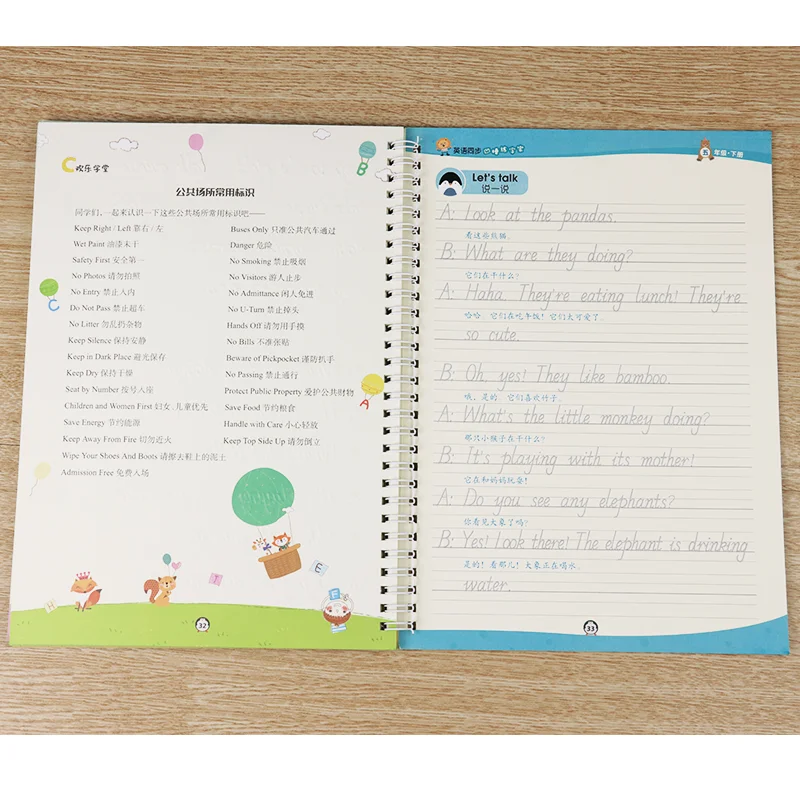 欢乐学堂
公共场所常用标识
同学们,一起来认识一下这些公共场所常用标识吧——
Keep Right / Left 靠右 / 左
Wet Paint 油漆未干
Safety First 安全第一
No Photos 请勿拍照
No Entry 禁止入内
Do Not Pass 禁止超车
No Litter 勿乱扔杂物
Keep Silence 保持安静
Keep in Dark Place 避光保存
Keep Dry 保持干燥
Seat by Number 按号入座
Children and Women First 妇女、儿童优先
Save Energy 节约能源
Keep Away From Fire 切勿近火
Wipe Your Shoes And Boots 请擦去鞋上的泥土
Admission Free 免费入场
Buses Only 只准公共汽车通过
Danger 危险
No Smoking 禁止吸烟
No Visitors 游人止步
No Admittance 闲人免进
No U-Turn 禁止掉头
Hands Off 请勿用手摸
No Bills 不准张贴
Beware of Pickpocket 谨防扒手
No Passing 禁止通行
Protect Public Property 爱护公共财物
Save Food 节约粮食
Handle with Care 小心轻放
Keep Top Side Up 请勿倒立
B
C
A
H
Y
E
E
32
英语同步
练字宝
五年级·下册
Let's talk
说一说
A: Look at the pandas.
看这些熊猫。
B: What are they doing?
它们在干什么?
A: Haha. They're eating lunch! They're
哈哈,它们在吃午饭!它们太可爱了。
so cute.
B: Oh, yes! They like bamboo.
哦,是的,它们喜欢竹子。
A: What's the little monkey doing?
那只小猴子在干什么?
B: It's playing with its mother!
它在和妈妈玩耍!
A: Do you see any elephants?
你看见大象了吗?
B: Yes! Look there! The elephant is drinking
是的!看那儿!大象正在喝水。
water.
33